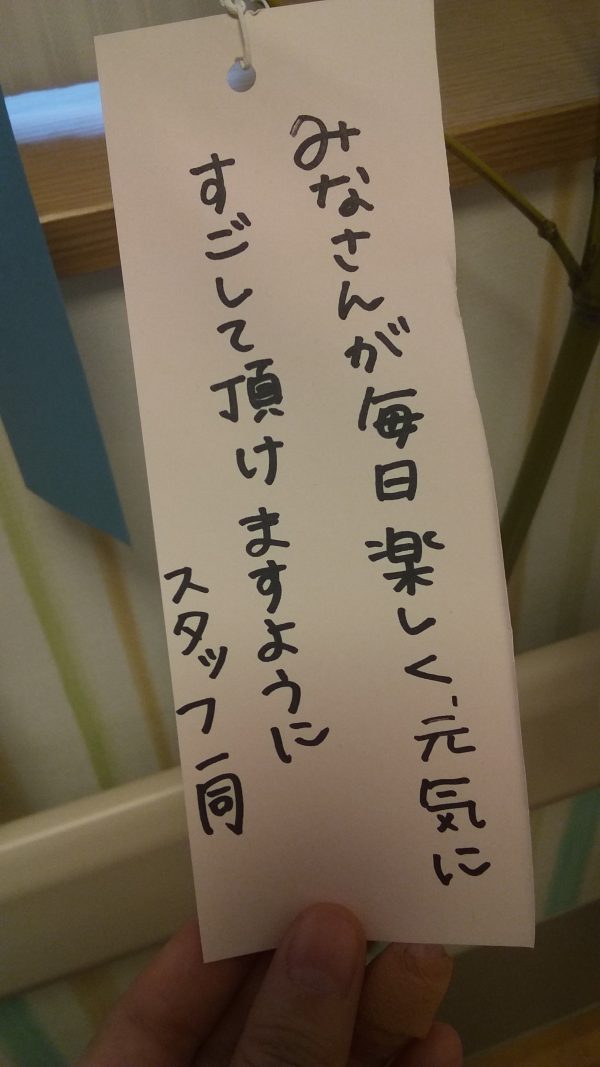 みなさんが毎日楽しく、元気に
すごして頂けますように
スタッフ一同